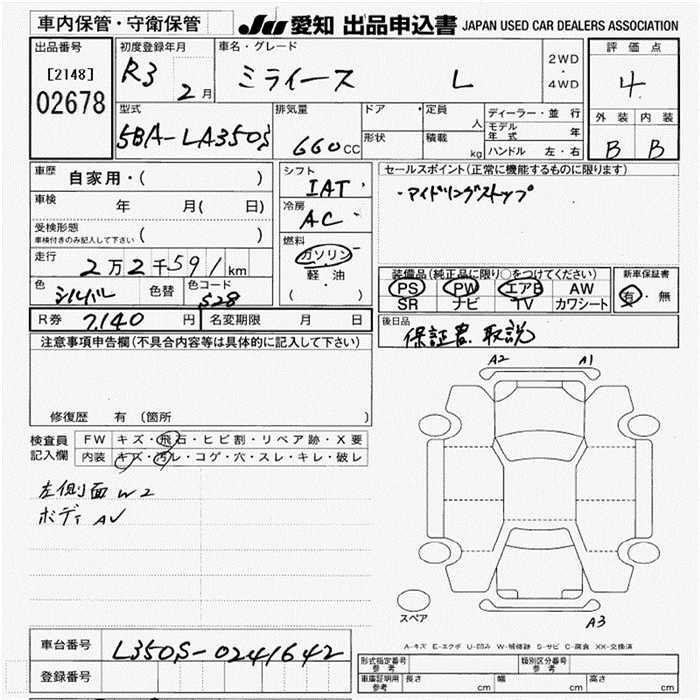 車内保管・守衛保管
JU 愛知 出品申込書 JAPAN USED CAR DEALERS ASSOCIATION
出品番号
[2148]
02678
初度登録年月
R3 2月
車名・グレード
ミライース L
2WD
・
4WD
評価点
4
外装 内装
B B
型式
5BA-LA350S
排気量
660CC
ドア・
形状
定員 人
積載 kg
ディーラー・並行
モデル年式 年
ハンドル 左・右
車歴 自家用・( )
車検 年 月( 日)
受検形態
車検付きのみ記入して下さい ( )
走行 2万2千591km
色 シルバー 色替 色コード S28
シフト
IAT
冷房
AC
燃料
ガソリン
軽・油
( )
セールスポイント(正常に機能するものに限ります)
・アイドリングストップ
装備品(純正品に限り○をつけてください)
PS PW エアB AW
SR ナビ TV カワシート
新車保証書
有・無
R券 7,140円 名変期限 月 日
後日品
保証書、取説
注意事項申告欄(不具合内容等は具体的に記入して下さい)
修復歴 有 (箇所
検査員記入欄
FW キズ・飛石・ヒビ割・リペア跡・X要
内装 キズ・汚レ・コゲ・穴・スレ・キレ・破レ
左側面 W2
ボディ AU
A2 A1
スペア
A3
A-キズ E-エクボ U-凹み W-補修跡 S-サビ C-腐食 XX-交換済
車台番号 LA350S-0241642
登録番号
形式指定番号 参考
類別区分番号 参考
車庫証明用 参考 長さ cm 幅 cm 高さ cm